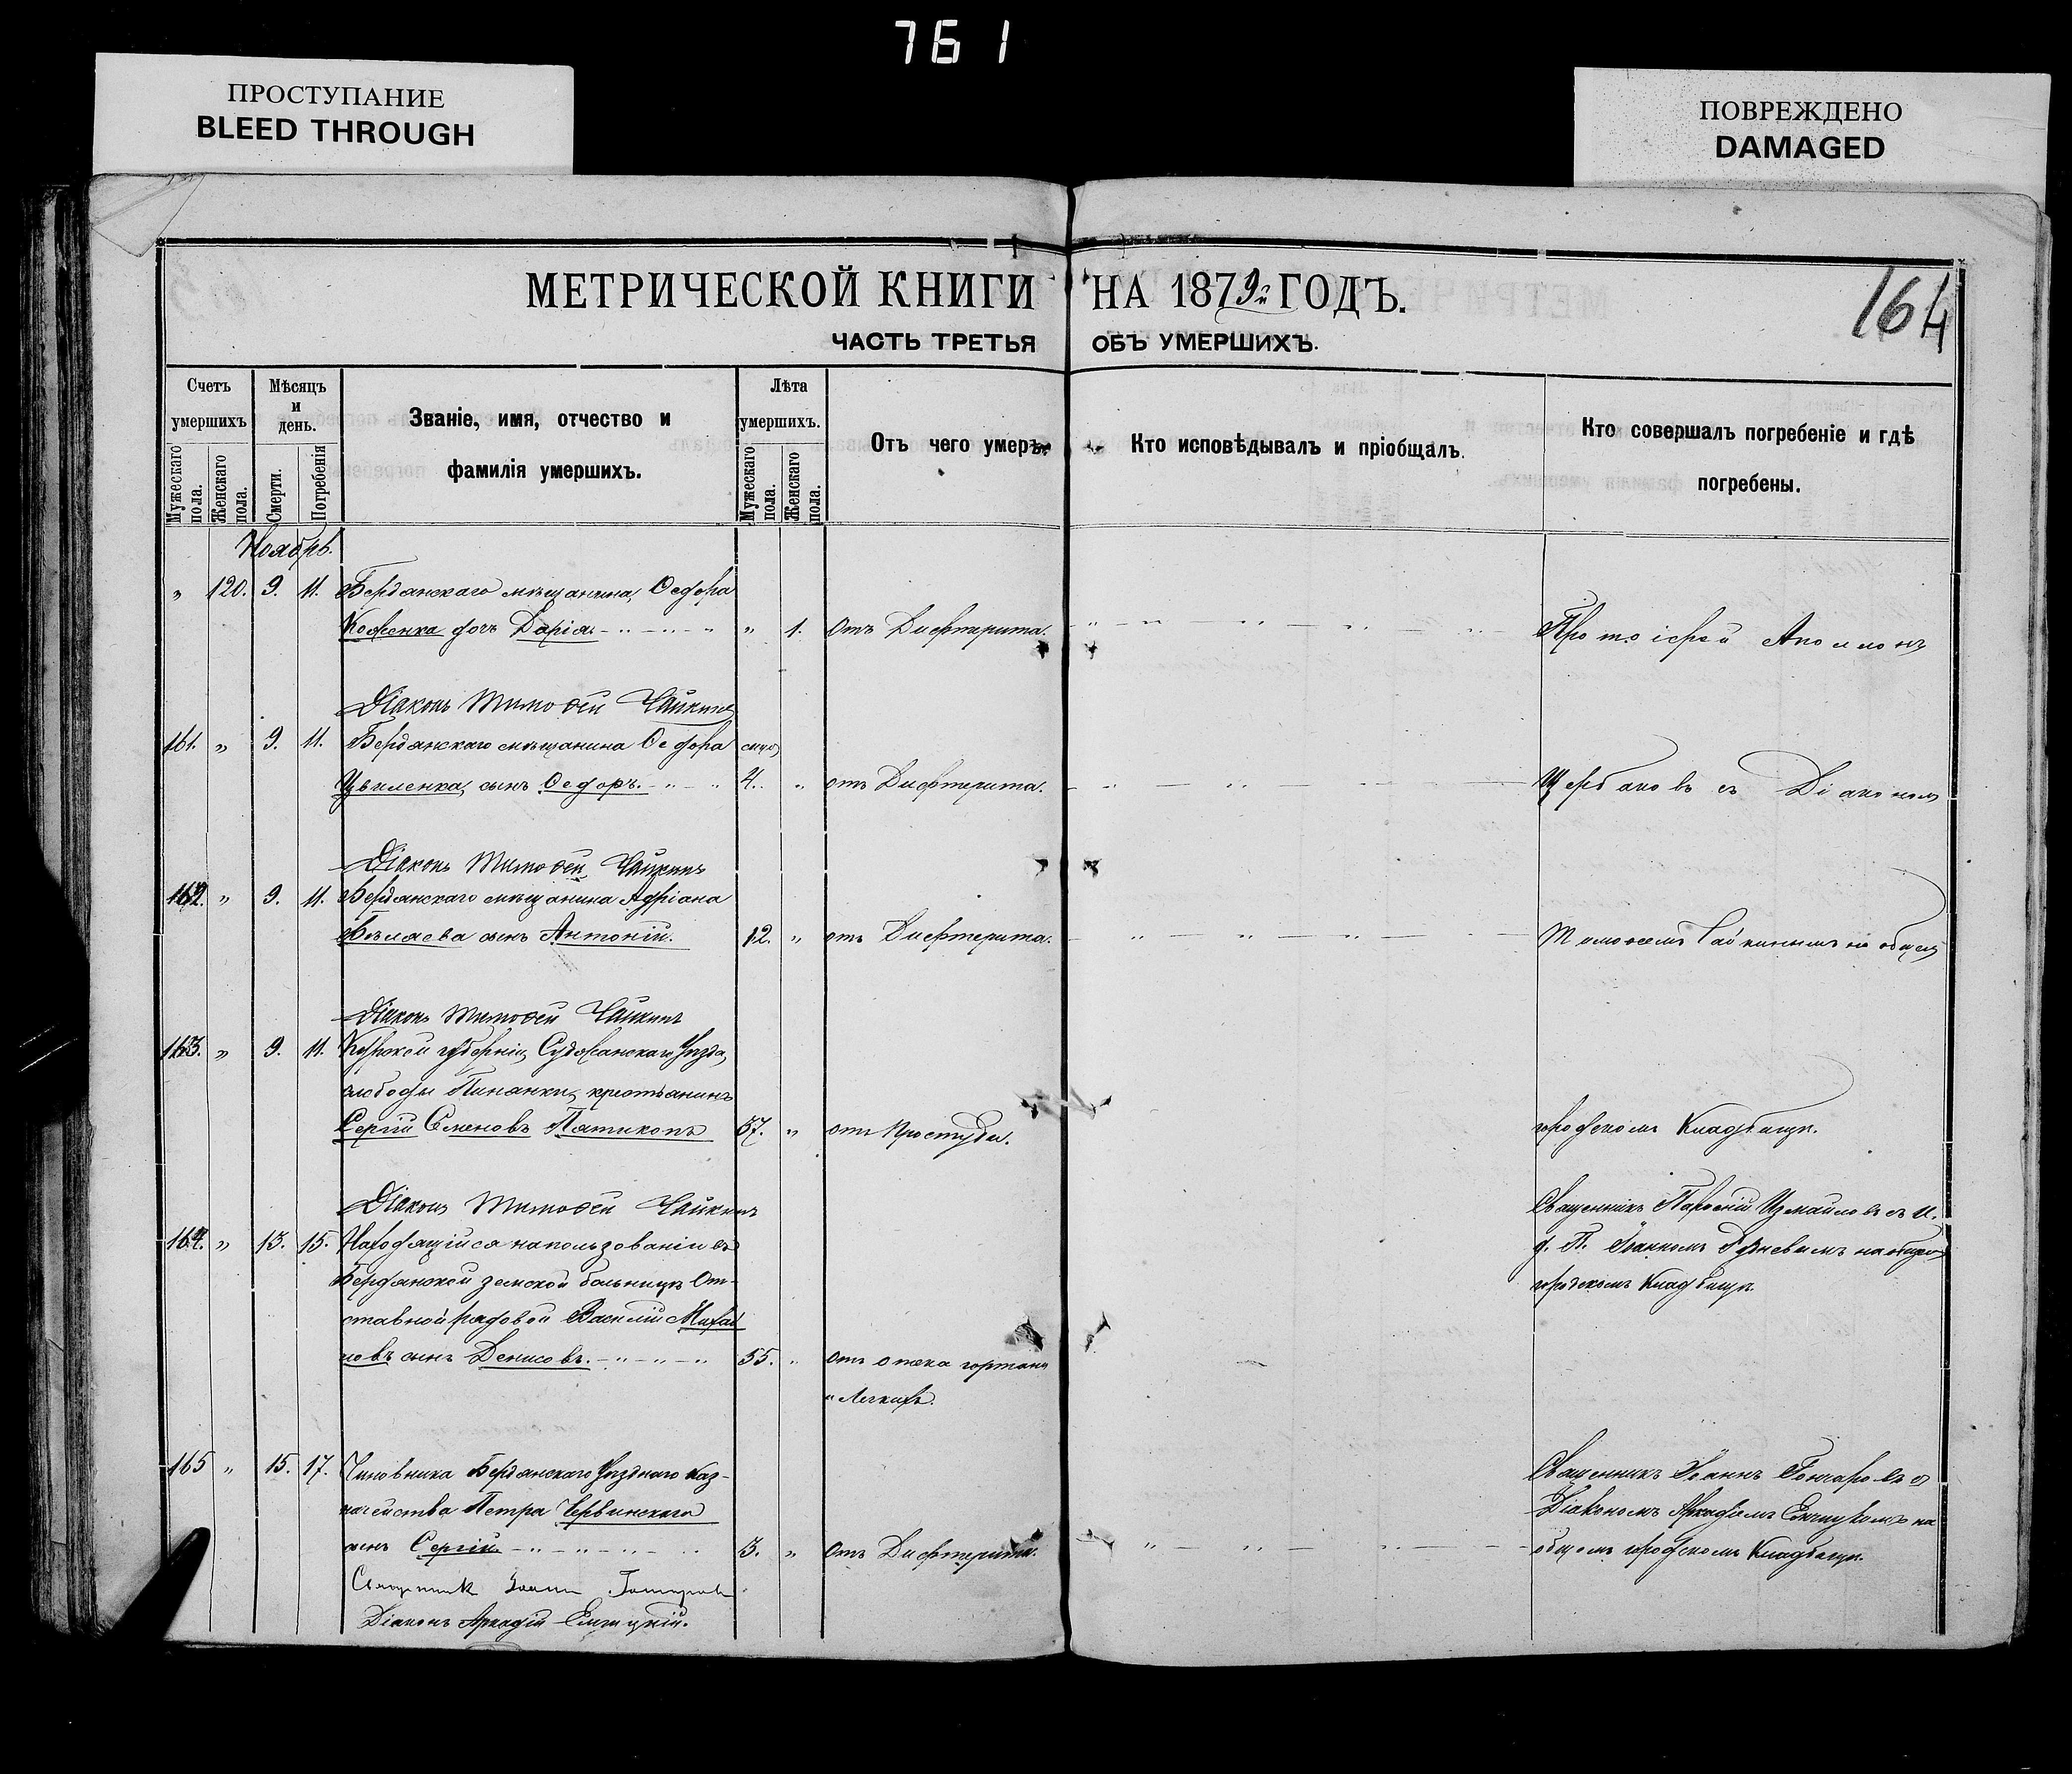 761
ПРОСТУПАНИЕ
BLEED THROUGH
ПОВРЕЖДЕНО
DAMAGED
МЕТРИЧЕСКОЙ КНИГИ НА 1879й ГОДЪ.
164
ЧАСТЬ ТРЕТЬЯ ОБЪ УМЕРШИХЪ.
Счетъ умершихъ
Мужескаго пола.
Женскаго пола.
Мѣсяцъ и день.
Смерти.
Погребенія
Званіе, имя, отчество и
фамилія умершихъ.
Лѣта умершихъ.
Мужескаго пола.
Женскаго пола.
Отъ чего умеръ.
Кто исповѣдывалъ и пріобщалъ.
Кто совершалъ погребеніе и гдѣ
погребены.
Ноябрь.
" 120. 9. 11. Бердянскаго мѣщанина, Ѳедора
Коженка дочь Дарія. " 1. Отъ Дифтерита. Протоіерей Аполлонъ
Діаконъ Тимоѳей Чайкинъ
161. " 9. 11. Бердянскаго мѣщанина Ѳедора
Цвиленка, сынъ Ѳедоръ. 4. " отъ Дифтерита. Щербаковъ съ Діакономъ
Діаконъ Тимоѳей Чайкинъ
162. " 9. 11. Бердянскаго мѣщанина Адріана
Бѣляева сынъ Антоній. 12. " отъ Дифтерита. Тимоѳеемъ Чайкинымъ на общемъ
Діаконъ Тимоѳей Чайкинъ
163. " 9. 11. Курской губерніи, Суджанскаго Уѣзда,
слободы крестьянинъ
Сергій Семеновъ 57. " отъ Простуды. городскомъ Кладбищѣ.
Діаконъ Тимоѳей Чайкинъ
164. " 13. 15. Находящійся на пользованіи въ
Бердянской земской больницѣ От-
ставной рядовой Василій Михай
ловъ сынъ Денисовъ. 55. " Отъ отека гортани
и Легкихъ.
Священникъ Парѳеній Измайловъ съ И.
д. П. Іоанномъ на общемъ
городскомъ Кладбищѣ.
165 " 15. 17. Чиновника Бердянскаго Уѣзднаго Каз-
начейства Петра Червинскаго
сынъ Сергій. 3. " Отъ Дифтерита.
Священникъ Іоаннъ Гончаровъ съ
Діакономъ Аркадіемъ на
общемъ городскомъ Кладбищѣ.
Священникъ Іоаннъ Гончаровъ
Діаконъ Аркадій